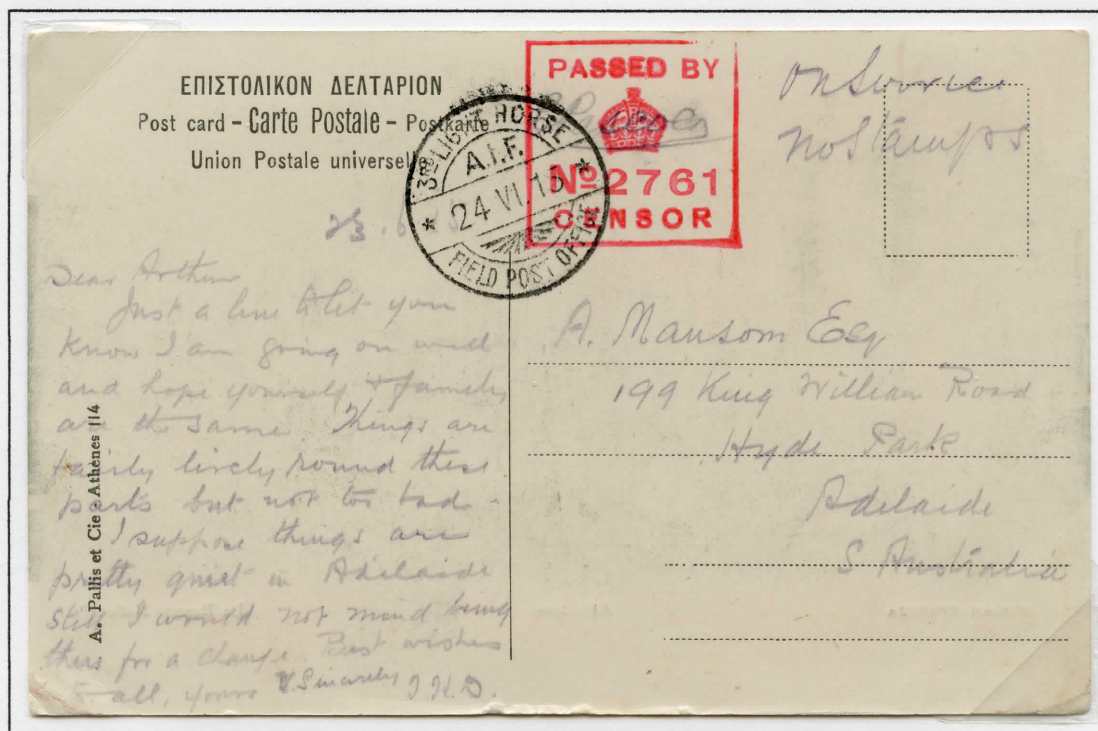 ΕΠΙΣΤΟΛΙΚΟΝ ΔΕΛΤΑΡΙΟΝ
Post card - Carte Postale - Postkarte
Union Postale universelle
PASSED BY
No 2761
CENSOR
3RD LIGHT HORSE
A.I.F.
24 VI 15
FIELD POST OFFICE
On Service
No Stamps
23.6.15
Dear Arthur
Just a line to let you
know I am going on well
and hope yourself & family
are the same Things are
fairly lively round these
parts but not too bad -
I suppose things are
pretty quiet in Adelaide
Still I would not mind being
there for a change Best wishes
to all, yours V. Sincerely
A. Mansom Esq
199 King William Road
Hyde Park
Adelaide
S Australia
A. Pallis et Cie - Athènes 114